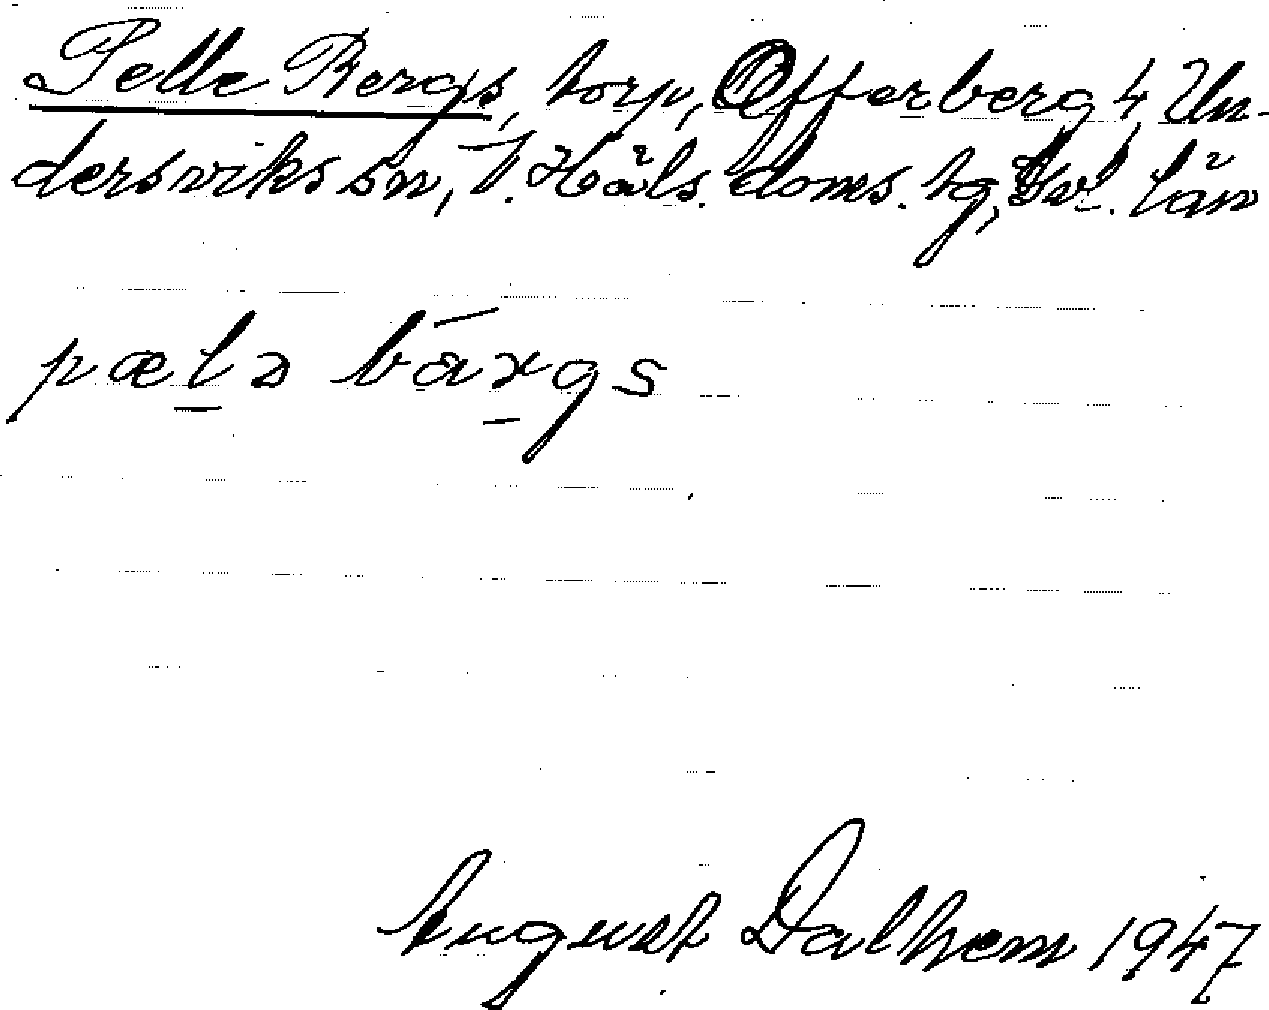 Pelle Bergs, torp, Offerberg 4, Un-
dersviks sn, V. Häls. doms. tg, Gvl. län
pælə bärgs
August Dalhem 1947